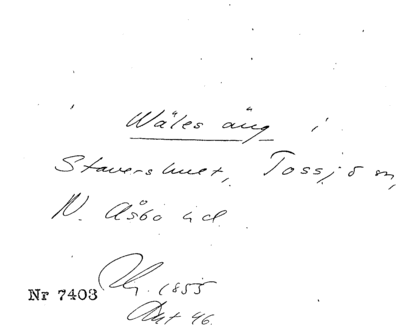 Wäles äng i
Stavershult, Tossjö sn,
N. Åsbo hd.
1855
Nr 7403
Akt 46.